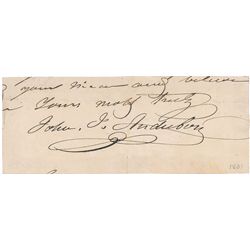 your views and believe
Yours most truly
John. J. Audubon